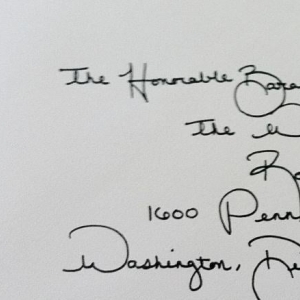 The Honorable Bara
The W
Ro
1600 Penn
Washington, D